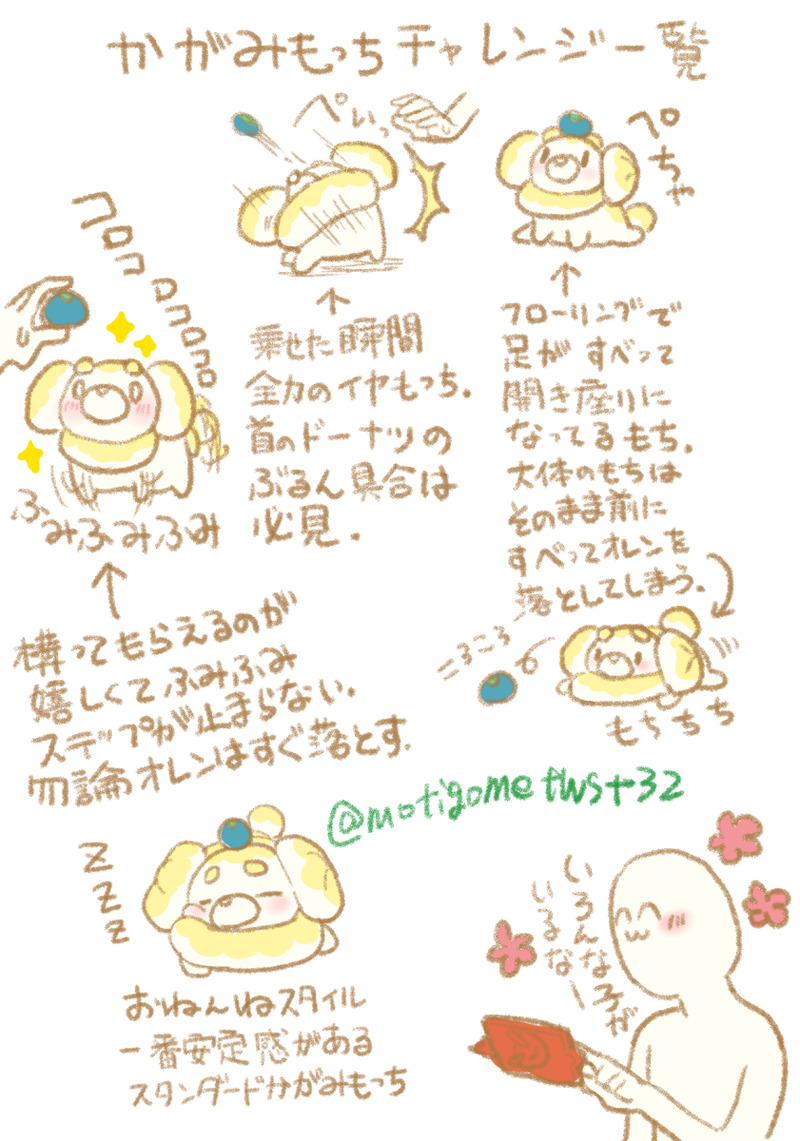 かがみもっちチャレンジ一覧
ぺいっ
ぺちゃ
コロコロコロコロ
ふみふみふみふみ
乗せた瞬間
全力のイヤもっち。
首のドーナツの
ぶるん具合は
必見。
フローリングで
足がすべって
開き座りに
なってるもち。
大体のもちは
そのまま前に
すべってオレンを
落としてしまう。
ころころ
もちちち
構ってもらえるのが
嬉しくてふみふみ
ステップが止まらない。
勿論オレンはすぐ落とす。
@motigometwst32
zzz
おねんねスタイル
一番安定感がある
スタンダードかがみもっち
いろんな子が
いるなー